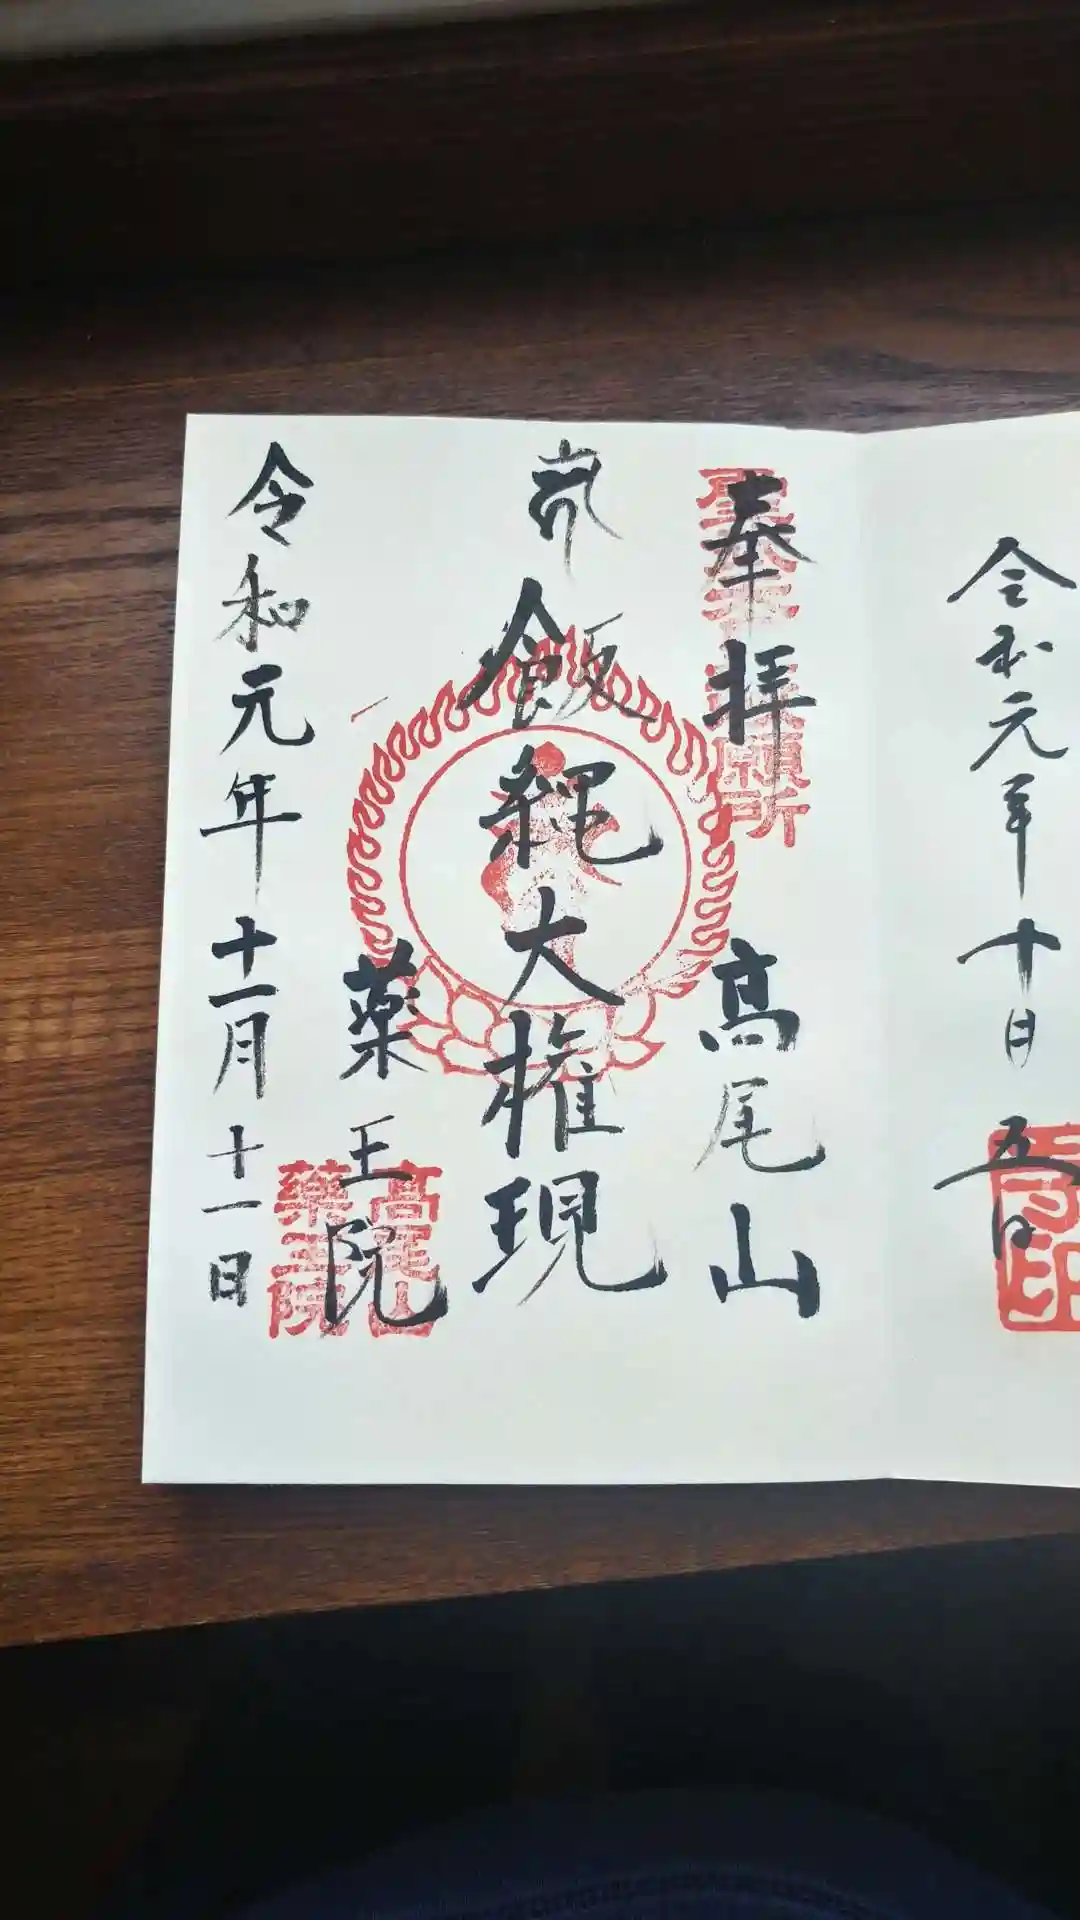 令和元年十日五日
奉拝
高尾山
飯縄大権現
薬王院
高尾山
薬王院
令和元年十一月十一日